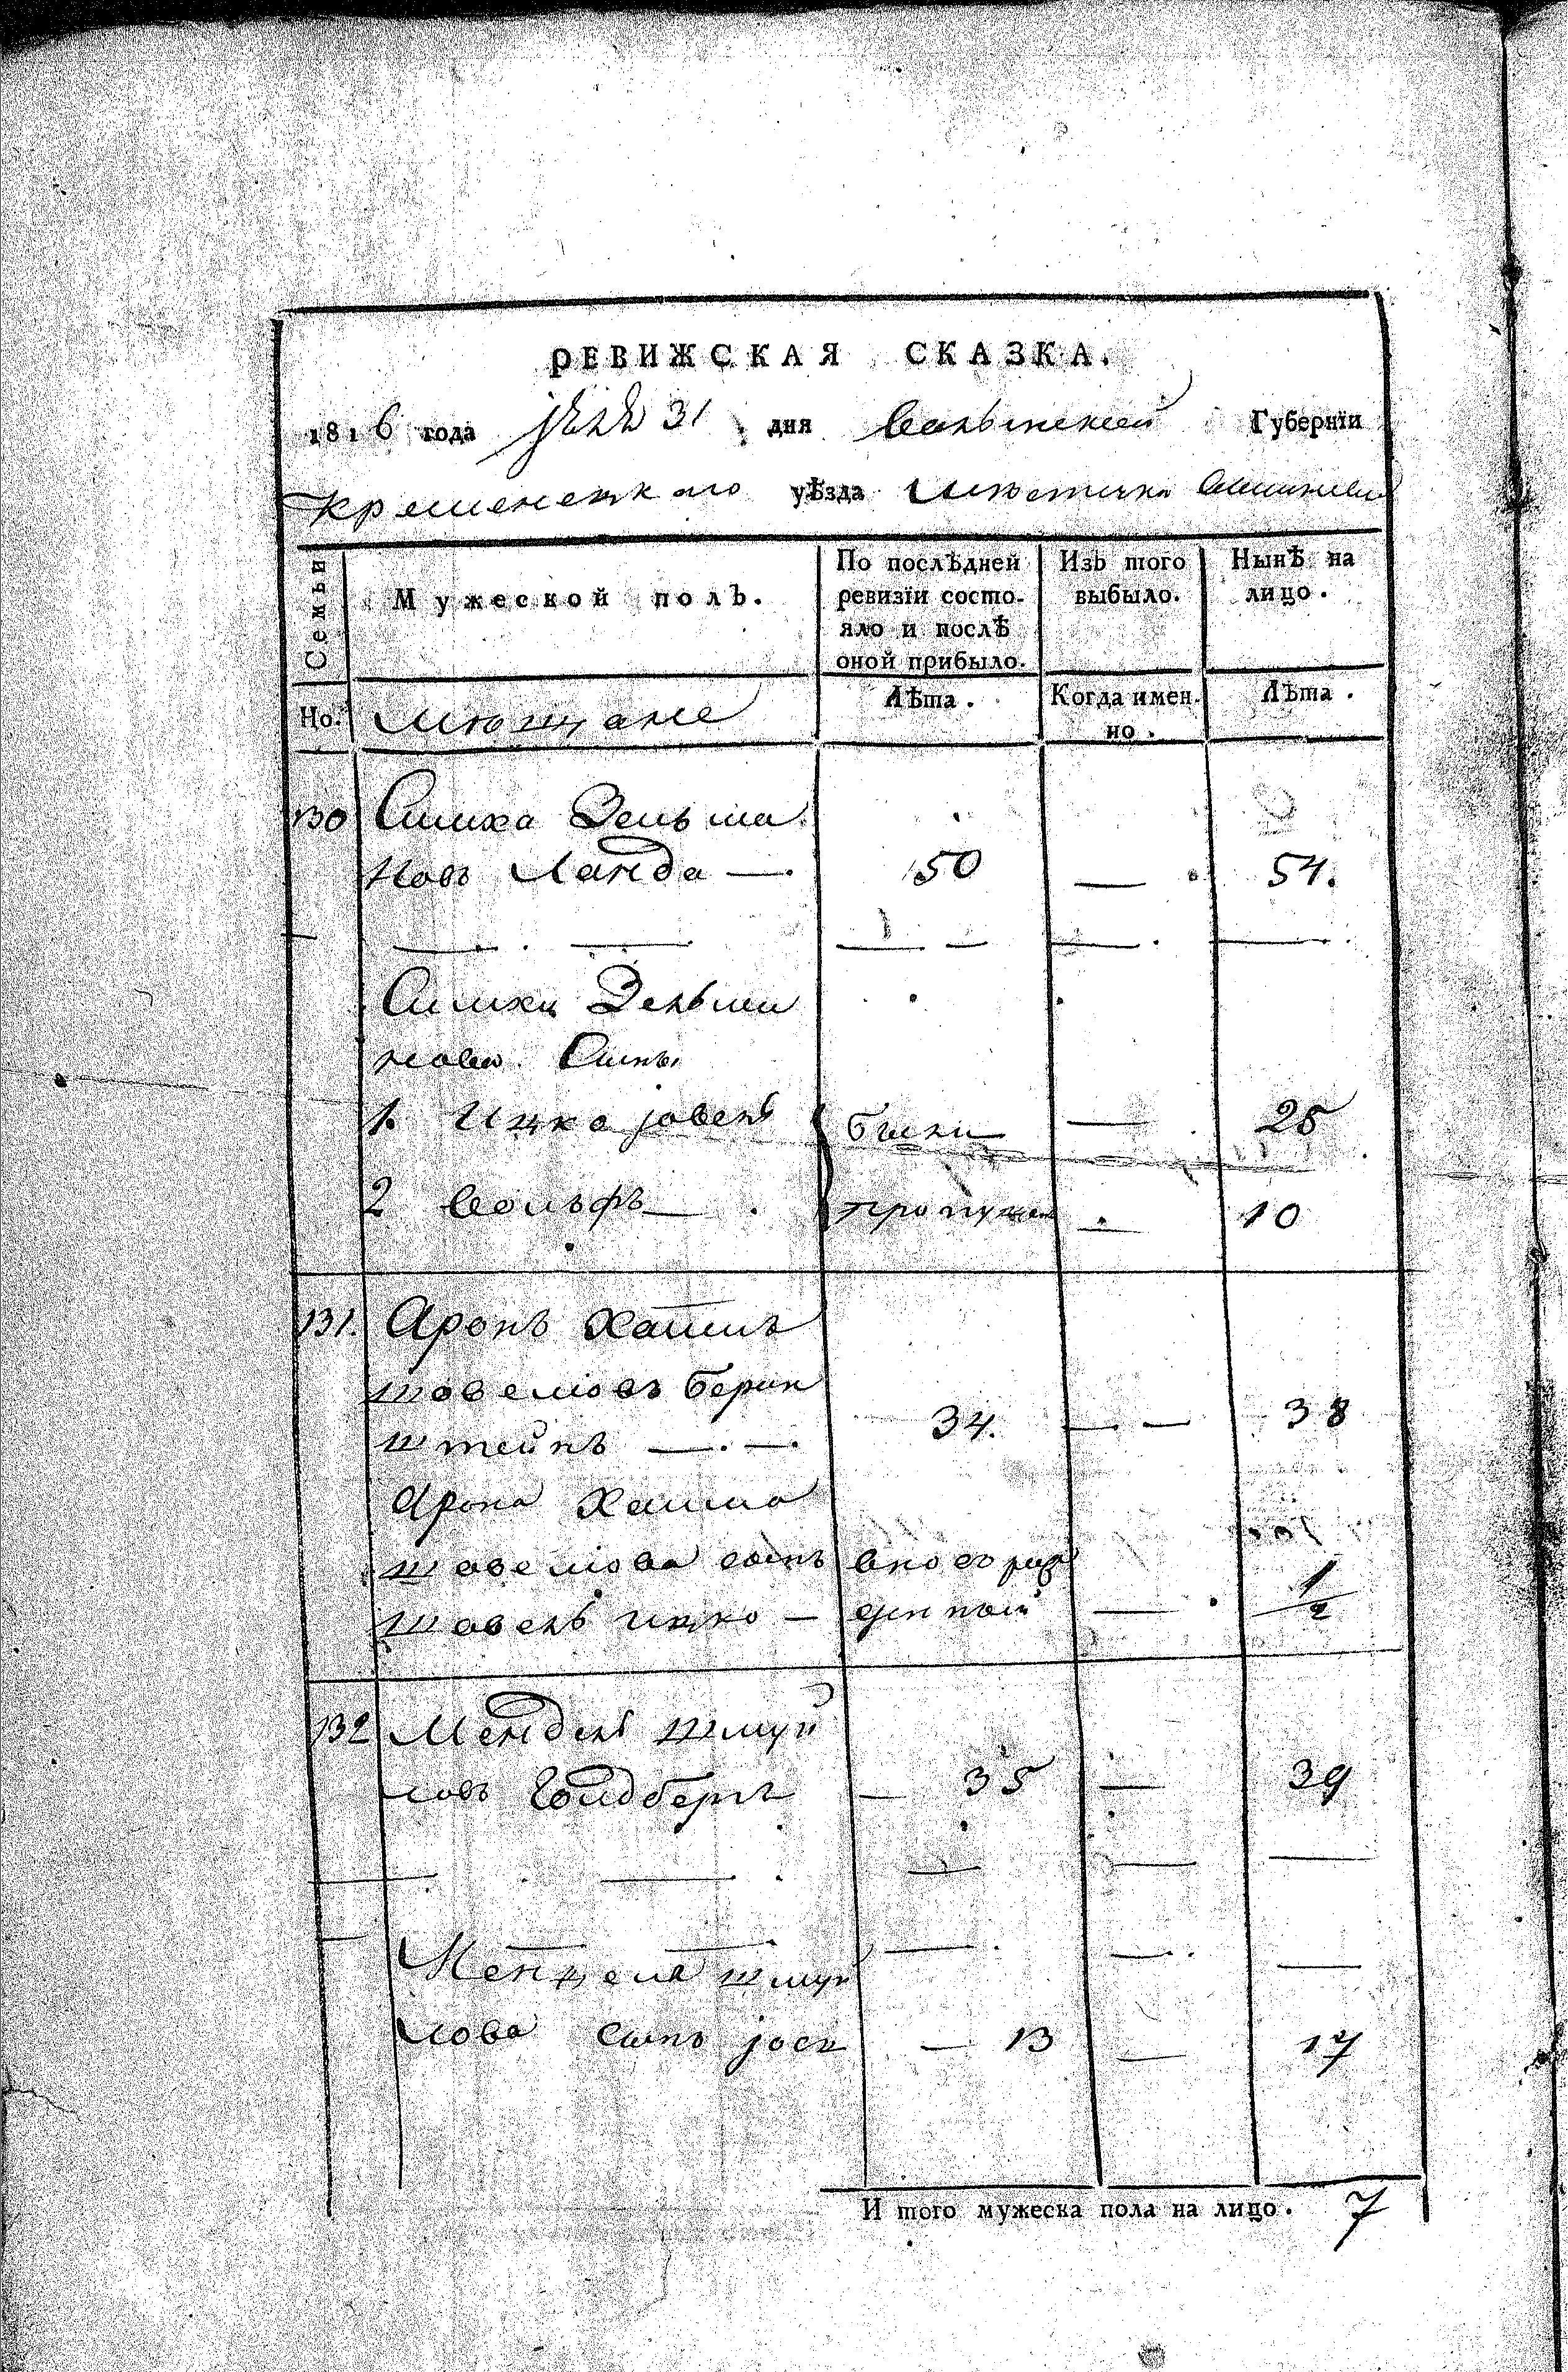 РЕВИЖСКАЯ СКАЗКА.
1816 года 31 дня Волынской Губернїи
Кременецкаго уѣзда мѣстечка
Семьи
Мужеской полъ.
По послѣдней ревизїи состо-
яло и послѣ
оной прибыло.
Изъ того
выбыло.
Нынѣ на
лицо.
Но.
мѣщане
Лѣта.
Когда имен-
но.
Лѣта.
130 Симха Зельма
новъ Ланда — 50 — 54.
Симхи Зельма
нова Сыны
1. Ицко јовель были — 25
2 Вольфъ — пропущен — 10
131. Аронъ Хаимъ
шовелювъ Берин
штейнъ — 34. — 38
Арона Хаима
шовелюва сынъ вновь рож
шовель ицко — денный — 1/2
132 Мендель шмуй
ловъ Голдбергъ — 35 — 39
Менделя шмуй
лова сынъ јось — 13 — 17
И того мужеска пола на лицо. 7